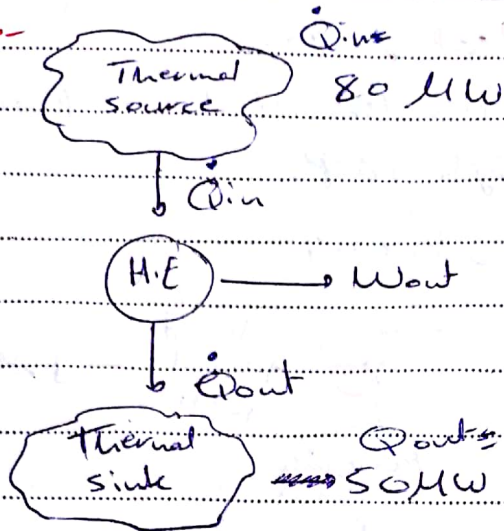 Q̇in=
Thermal source
80 MW
Q̇in
H.E
Wout
Q̇out
Thermal sink
Qout=
50MW